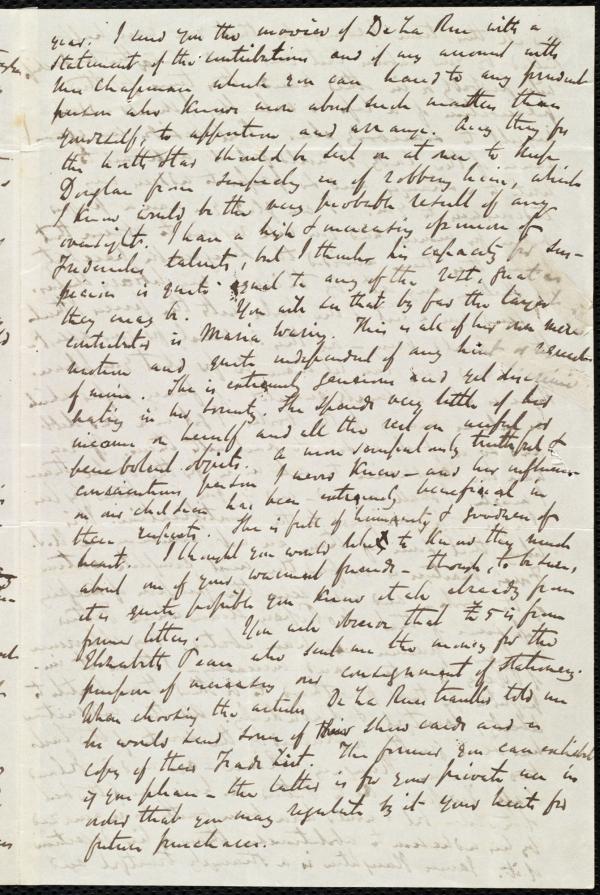 year. I send you the invoice of De La Rue with a
statement of the contributions and of my account with
Mrs Chapman which you can hand to any prudent
person who knows more about such matters than
yourself, to apportion and arrange. Any thing for
the North Star should be sent on at once, to keep
Douglass from suspecting us of robbing him, which
I know would be the very probable result of any
oversight. I have a high & increasing opinion of
Fredericks talents, but I think his capacity for sus-
picion is quite equal to any of the rest, great as
they may be. You will see that by far the largest
contributor is Maria Waring. This is all of her own mere
motion and quite independent of any hint or
of mine. She is extremely generous and yet discrimi-
nating in her bounty. She spends very little of her
income on herself and all the rest on useful or
benevolent objects. A more scrupulously truthful &
conscientious person I never knew — and her influence
on our children has been extremely beneficial in
these respects. She is full of humanity & goodness of
heart. I thought you would like to know thus much
about one of your warmest friends — though, to be sure,
it is quite possible you know it all already from
former letters. You will observe that £5 is from
Elizabeth Pease who sent me the money for the
purpose of increasing our consignment of stationery.
When choosing the articles De La Rues traveller told me
he would send some of their show cards and a
copy of their Trade List. The former you can exhibit
if you please — the latter is for your private use in
order that you may regulate by it your hints for
future purchases.